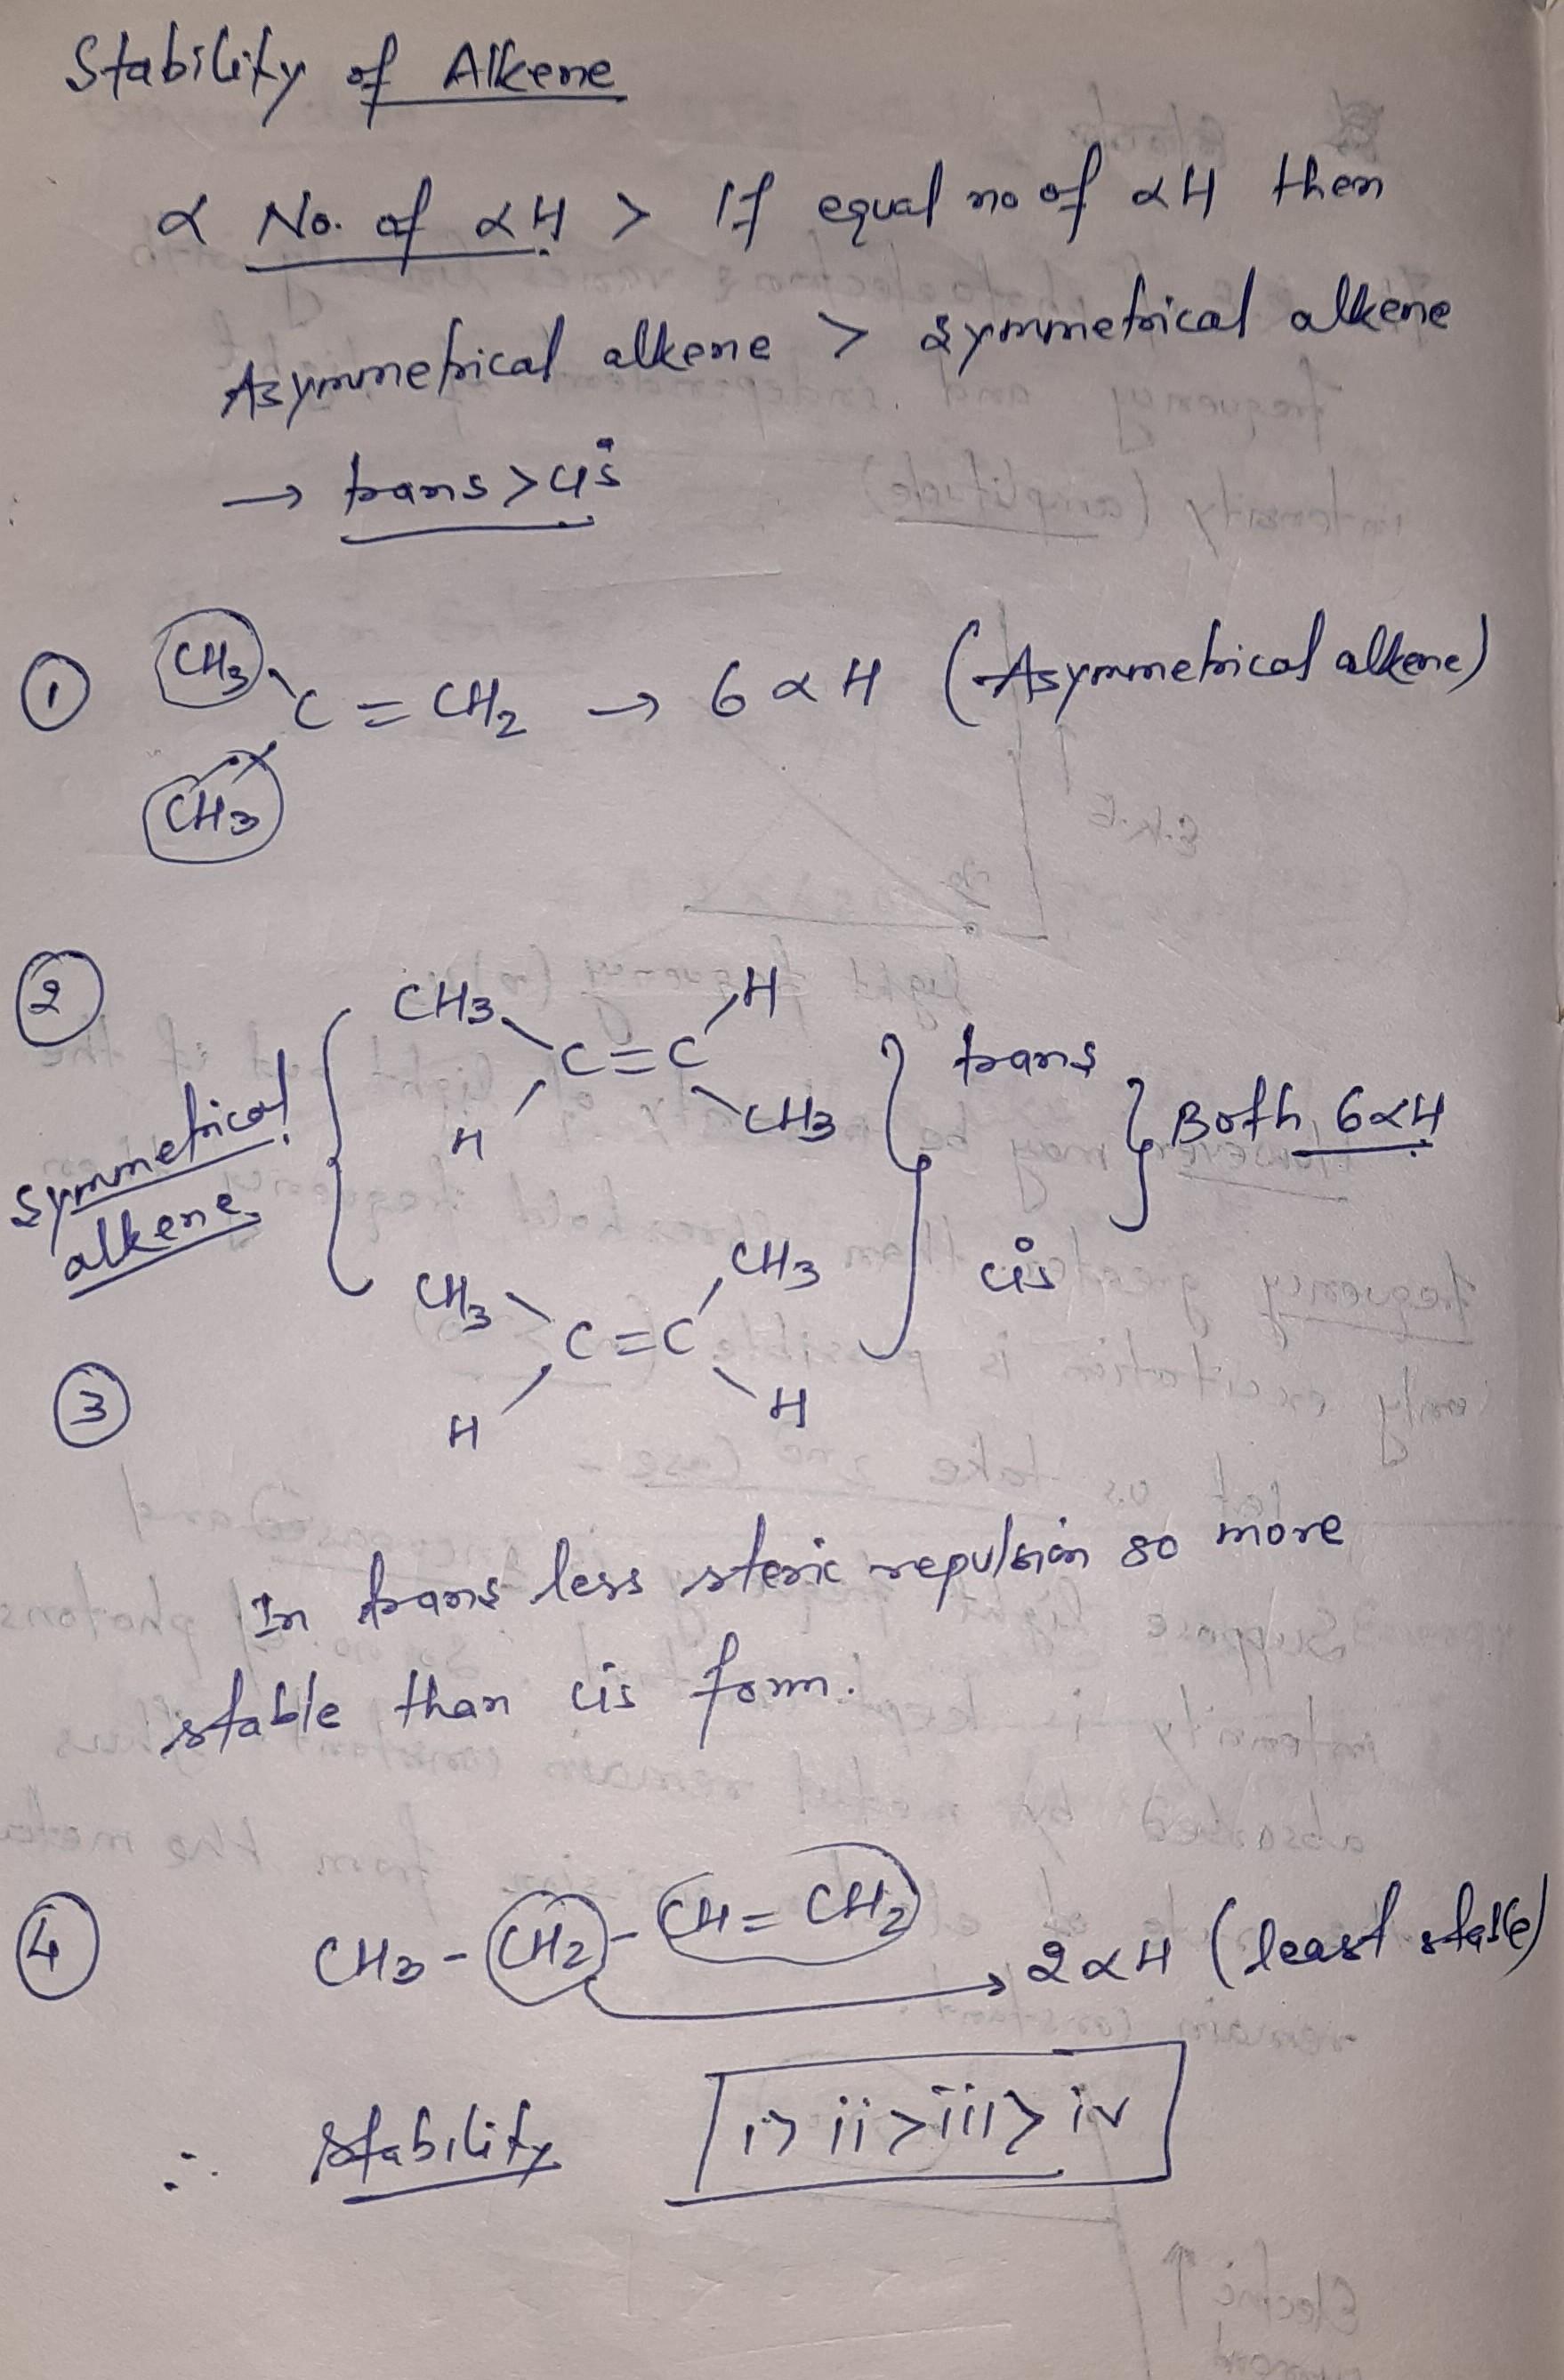 Stability of Alkene
α No. of αH > If equal no of αH then
Asymmetrical alkene > symmetrical alkene
→ trans > cis
① CH3
C = CH2 → 6 αH (Asymmetrical alkene)
CH3
②
CH3 H
C=C
H CH3
trans
Both 6αH
Symmetrical
alkene
CH3 CH3
C=C
H H
cis
③
In trans less steric repulsion so more
stable than cis form.
④ CH3 - CH2 - CH = CH2
→ 2αH (least stable)
∴ Stability i > ii > iii > iv